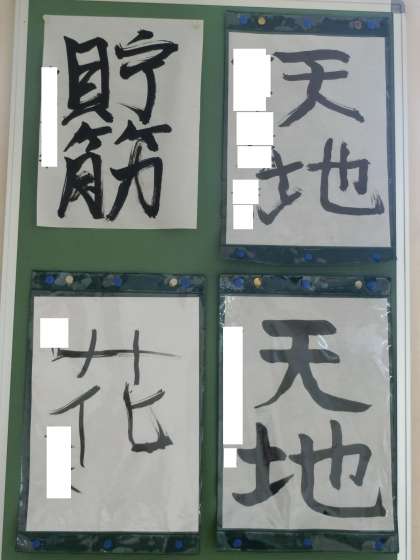 貯筋
天地
花
天地